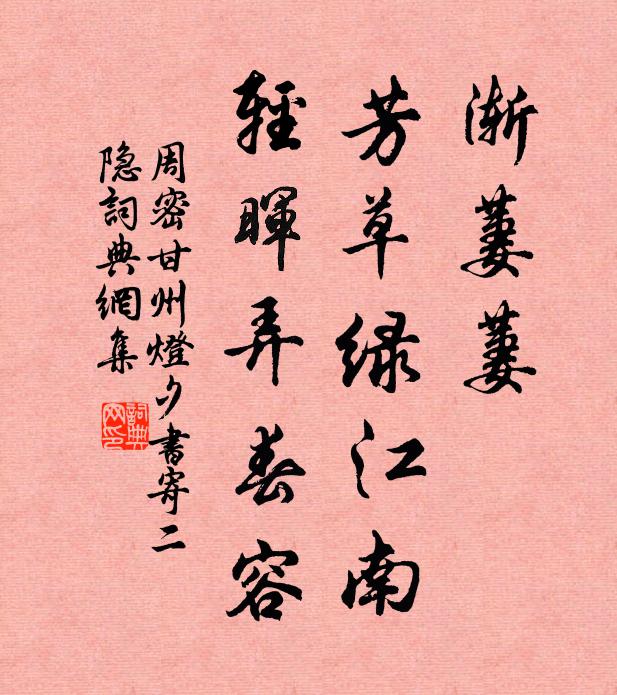 漸萋萋
芳草緑江南
輕暉弄春容
周密甘州燈夕書寄二
隐詞典網集
詞典
网印